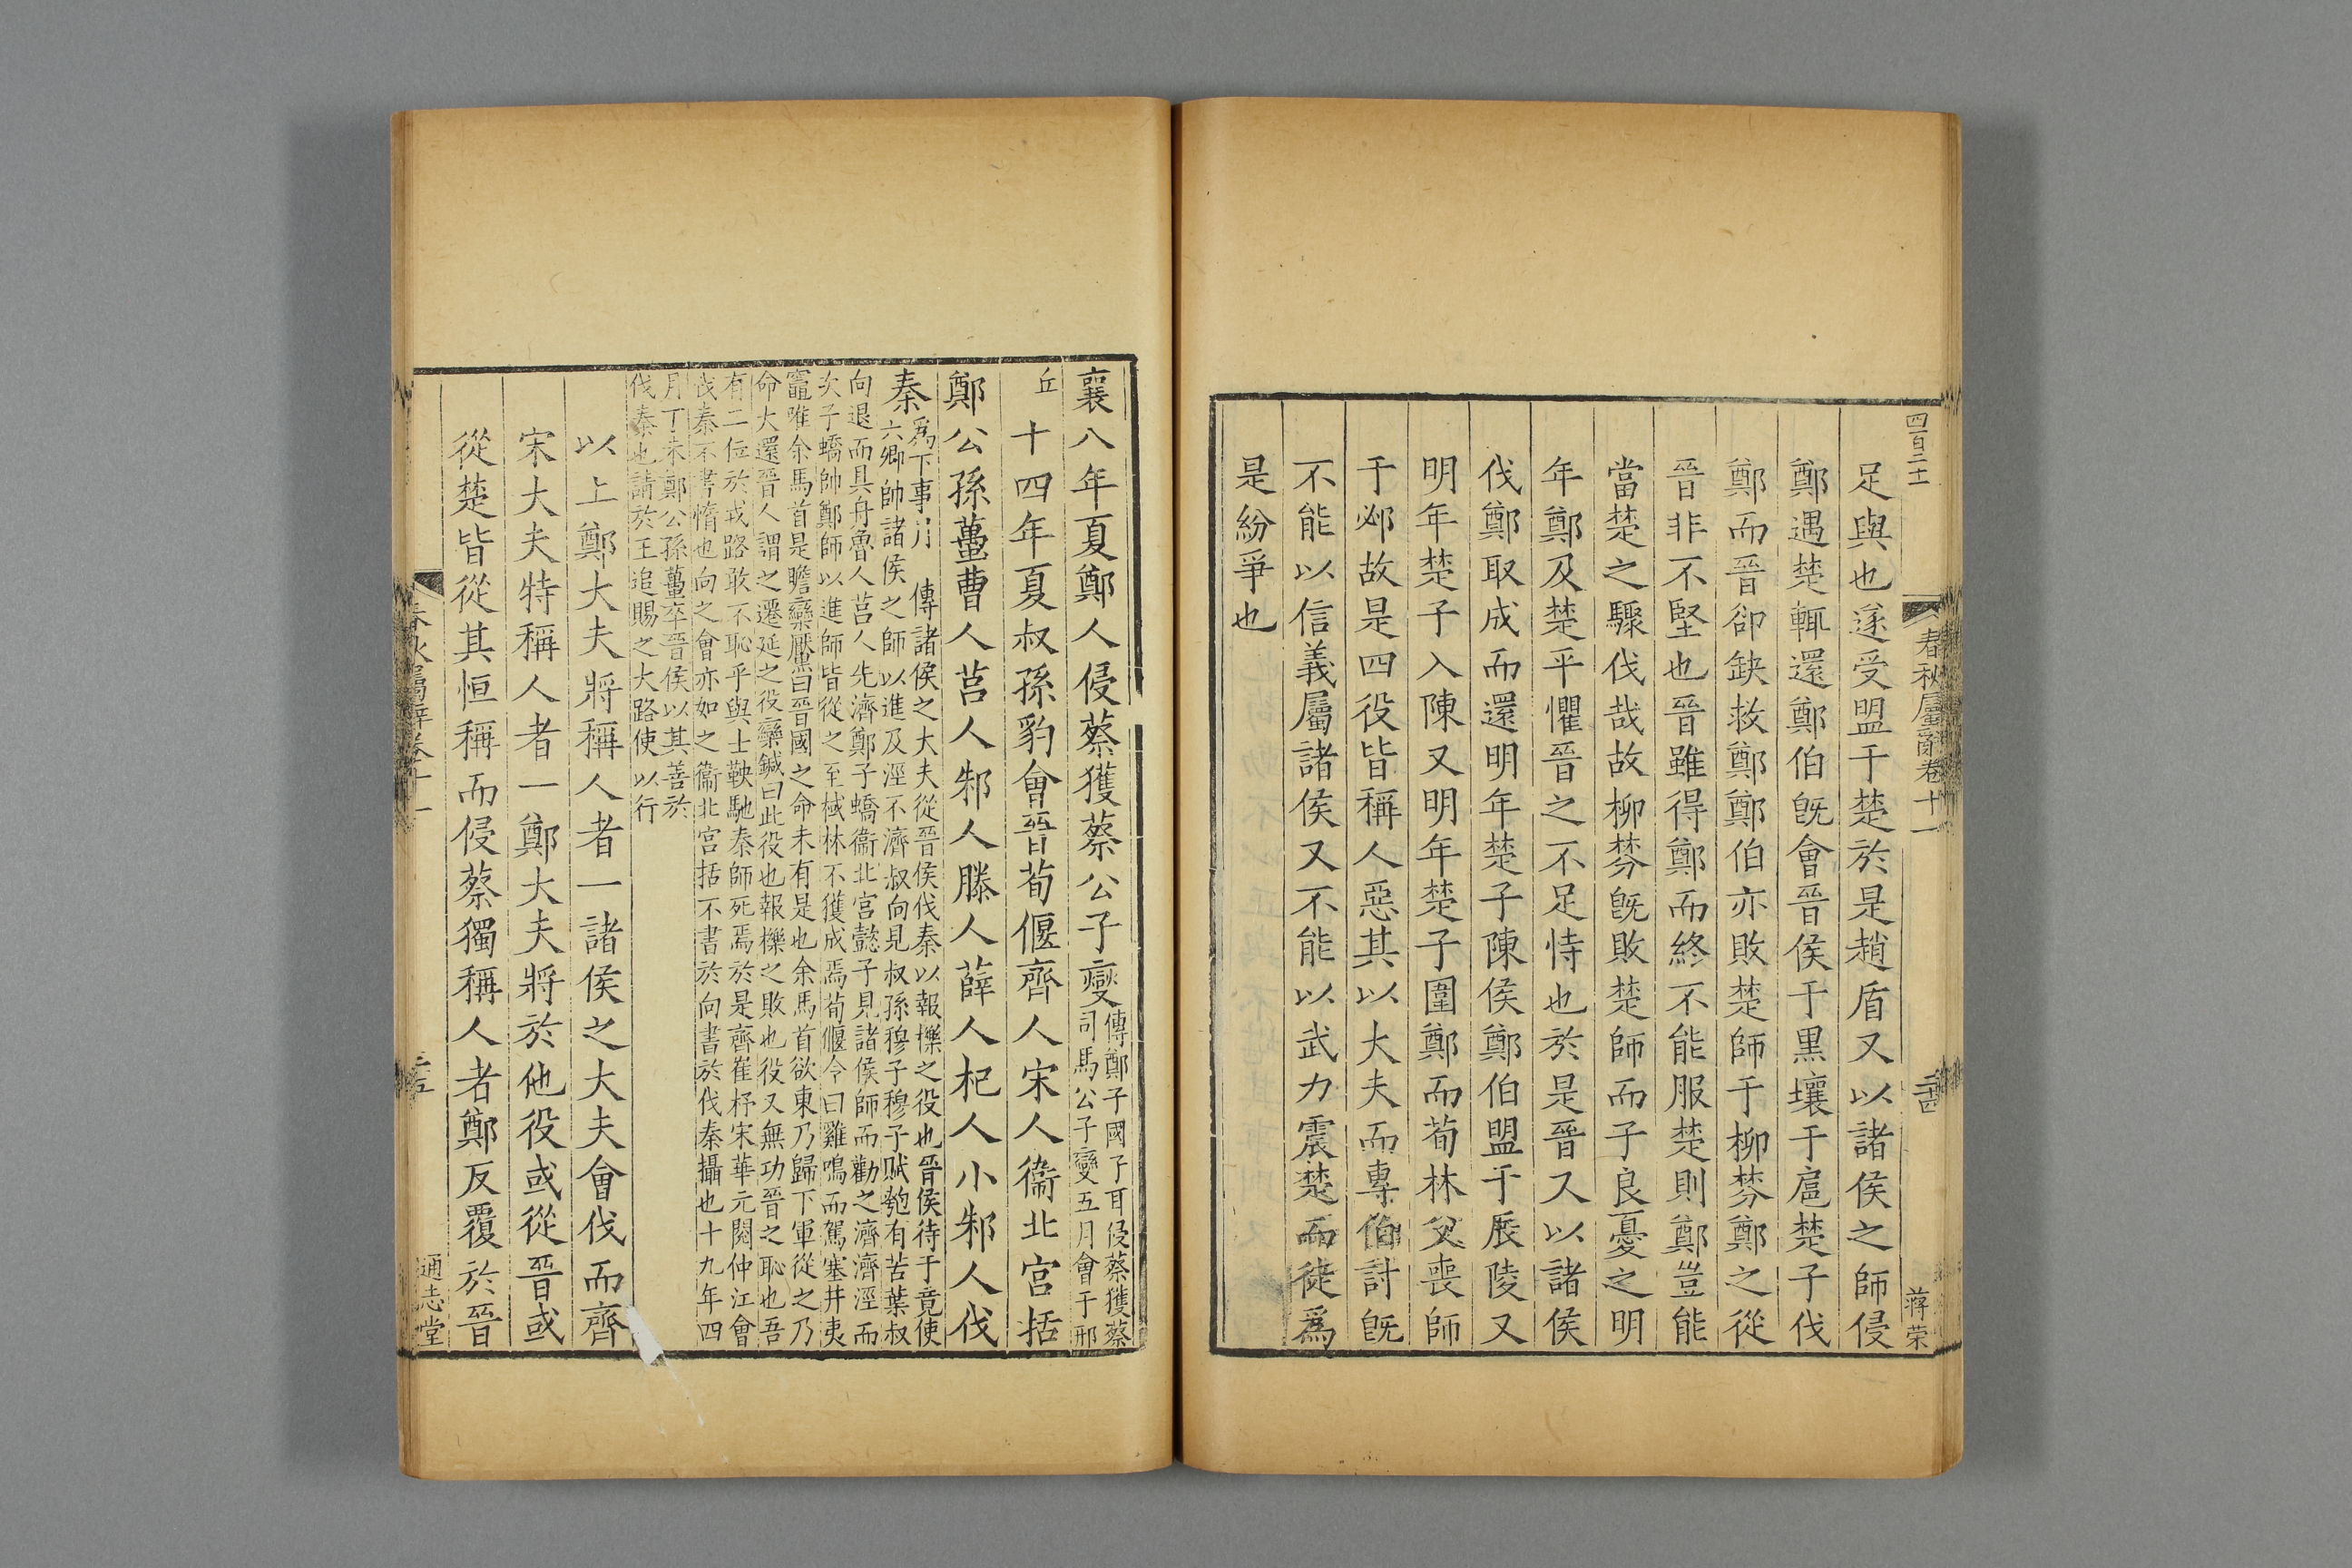 四百二十
春秋屬辭卷十一
二十四
蔣荣
足與也遂受盟于楚於是趙盾又以諸侯之師侵
鄭遇楚輒還鄭伯旣會晉侯于黒壤于扈楚子伐
鄭而晉卻缺救鄭鄭伯亦敗楚師于柳棼鄭之從
晉非不堅也晉雖得鄭而終不能服楚則鄭豈能
當楚之驟伐哉故柳棼旣敗楚師而子良憂之明
年鄭及楚平懼晉之不足恃也於是晉又以諸侯
伐鄭取成而還明年楚子陳侯鄭伯盟于辰陵又
明年楚子入陳又明年楚子圍鄭而荀林父喪師
于邲故是四役皆稱人惡其以大夫而專伯討旣
不能以信義屬諸侯又不能以武力震楚而徒爲
是紛爭也
襄八年夏鄭人侵蔡獲蔡公子變
傳鄭子國子耳侵蔡獲蔡
司馬公子變五月會于邢
丘
十四年夏叔孫豹會晉荀偃齊人宋人衞北宮括
鄭公孫蠆曹人莒人邾人滕人薛人杞人小邾人伐
秦
爲下事月 傳諸侯之大夫從晉侯伐秦以報櫟之役也晉侯待于竟使
六卿帥諸侯之師以進及涇不濟叔向見叔孫穆子穆子賦匏有苦葉叔
向退而具舟魯人莒人先濟鄭子蟜衞北宮懿子見諸侯師而勸之濟濟涇而
次子蟜帥鄭師以進師皆從之至棫林不獲成焉荀偃令曰雞鳴而駕塞井夷
竈唯余馬首是瞻欒黶曰晉國之命未有是也余馬首欲東乃歸下軍從之乃
命大還晉人謂之遷延之役欒鍼曰此役也報櫟之敗也役又無功晉之恥也吾
有二位於戎路敢不恥乎與士鞅馳秦師死焉於是齊崔杼宋華元閱仲江會
伐秦不書惰也向之會亦如之衞北宮括不書於向書於伐秦攝也十九年四
月丁未鄭公孫蠆卒晉侯以其善於
伐秦也請於王追賜之大路使以行
以上鄭大夫將稱人者一諸侯之大夫會伐而齊
宋大夫特稱人者一鄭大夫將於他役或從晉或
從楚皆從其恒稱而侵蔡獨稱人者鄭反覆於晉
春秋屬辭卷十一
二十五
通志堂